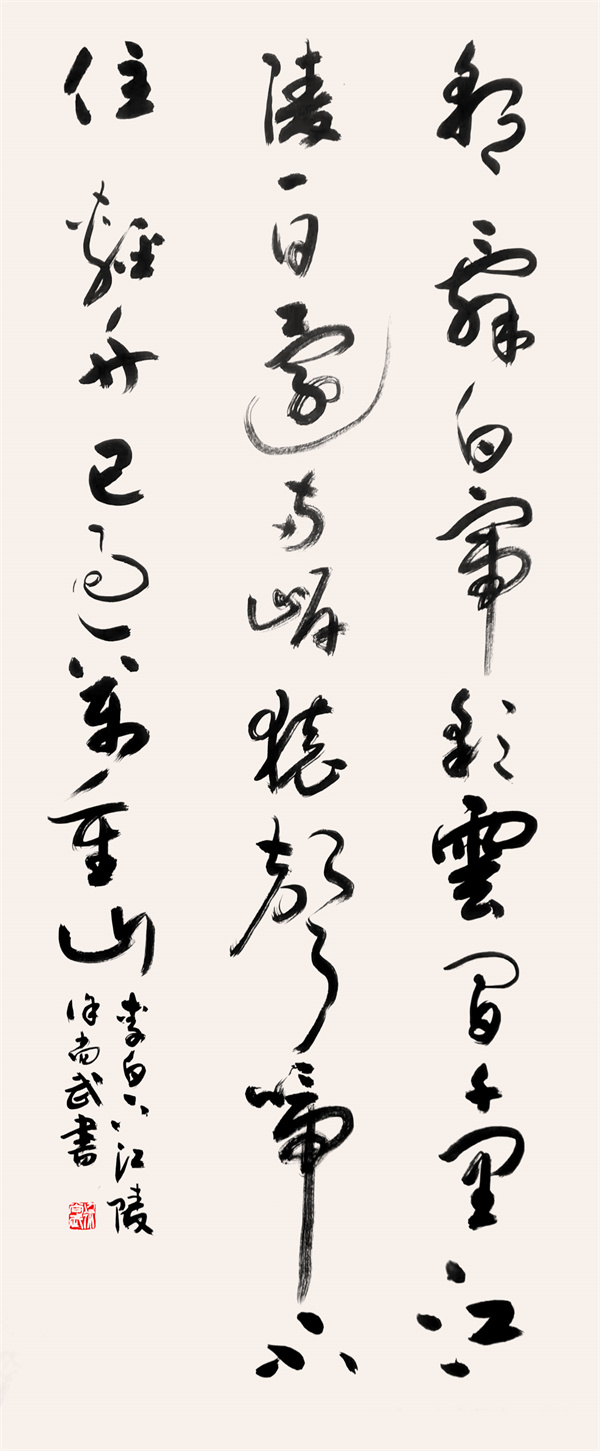 朝辭白帝彩雲間千里江
陵一日還兩岸猿聲啼不
住輕舟已過萬重山
李白下江陵
徐尚武書